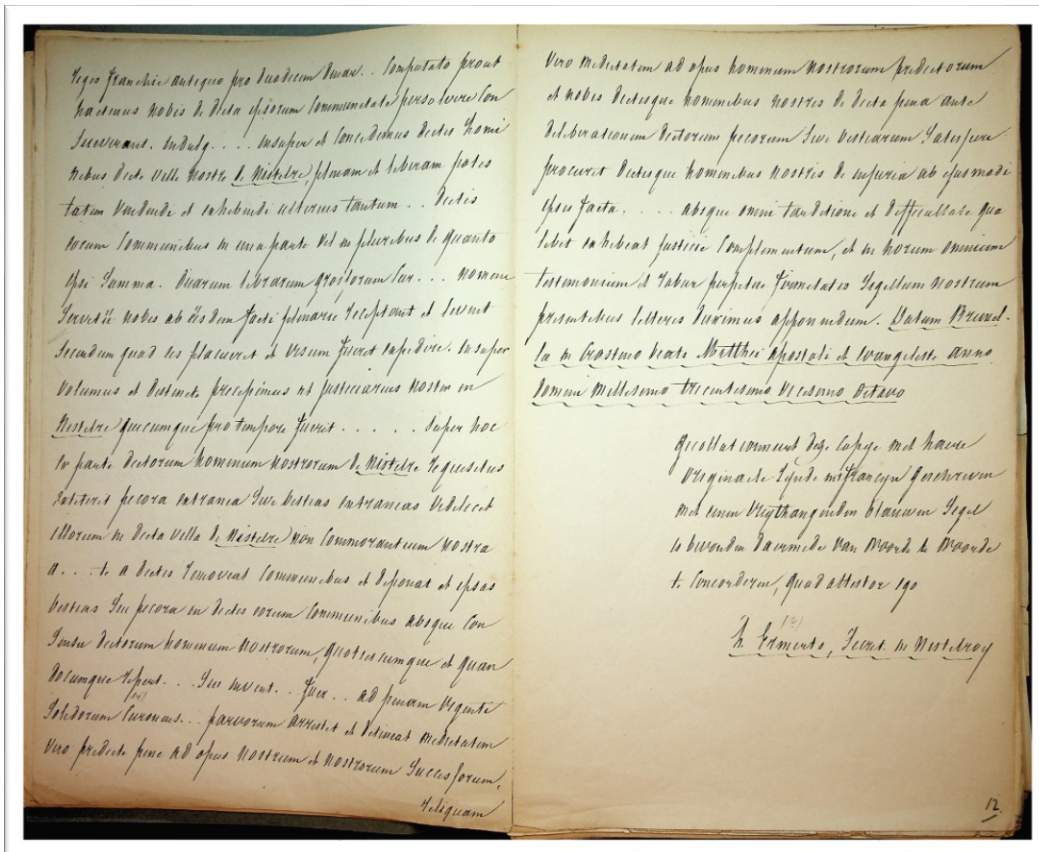 Regis Franchie antiquo pro duodecim denar.. Computato prout
hactenus nobis de dicta ipsorum Communitate persolvere Con
sueverant. Indulg.... insuper et Concedimus dictis homi
nibus dicte ville nostre de Nistelre, plenam et liberam potes
tatem vendendi et exhibendi ulterius tantum .. dictis
eorum Communibus in una parte vel in pluribus de quanto
ipsi Summa. duarum librarum grossorum Cur... nomine
Servitii nobis ab iisdem facti plenarie receperunt et levent
secundum quod eis placuerit et visum fuerit expedire. Insuper
volumus et distincte precipimus ut justiciarius noster in
Nistelre quicumque pro tempore fuerit ..... super hoc
ex parte dictorum hominum nostrorum de Nistelre requisitus
extiterit pecora extranea sive bestias extraneas videlicet
illorum in dicta villa de Nistelre non Commorantium nostra
a... te a dictis removeat Communibus et deponat et ipsas
bestias seu pecora in dictis eorum Communibus absque Con
sensu dictorum hominum nostrorum, quotiescumque et quan
documque reperi.. sue invent.. fuer.. ad penam viginti
Solidorum Turonens.. parvorum arrestet et detineat medietatem
vero predicte pene ad opus nostrum et nostrorum Successorum,
reliquam
vero medietatem ad opus hominum nostrorum predictorum
et nobis dictisque hominibus nostris de dicta pena ante
deliberationem dictorum pecorum sive bestiarum satisfieri
procuret dictisque hominibus nostris de injuria ab ejusmodi
ipsis facta..... absque omni tarditione et difficultate qua
libet exhibeat justicie Complementum, et in horum omnium
testimonium et robur perpetue firmitatis Sigillum nostrum
presentibus litteris duximus apponendum. Datum Bruxel-
la in Crastino beati Matthei Apostoli et Evangeliste anno
domini Millesimo trecentesimo vicesimo octavo
Gecollationneert dese Copye met haere
Originaele Synde in francyn geschreven
met eenen uuythangenden blauwen Segel
is bevonden daermede van Woorde te Woorde
te Concorderen, quod attestor ego
(w)
Ermerts, Secret. in Nistelroy
12.